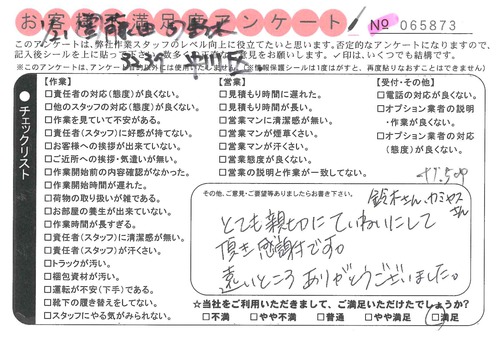 お客様満足度アンケート
No 065873
このアンケートは、弊社作業スタッフのレベル向上に役立てたいと思います。否定的なアンケートになりますので、
記入後シールを上に貼って下さい。数多くの正直なご意見をお願いします。✓印は、いくつでも結構です。
チェックリスト
【作業】
□責任者の対応(態度)が良くない。
□他のスタッフの対応(態度)が良くない。
□作業を見ていて不安がある。
□責任者(スタッフ)に好感が持てない。
□お客様への挨拶が出来ていない。
□ご近所への挨拶・気遣いが無い。
□作業開始前の内容確認がなかった。
□作業開始時間が遅れた。
□荷物の取り扱いが雑である。
□お部屋の養生が出来ていない。
□作業時間が長すぎる。
□責任者(スタッフ)に清潔感が無い。
□責任者(スタッフ)が汗くさい。
□トラックが汚い。
□梱包資材が汚い。
□運転が不安(下手)である。
□靴下の履き替えをしてない。
□スタッフにやる気がみられない。
【営業】
□見積もり時間に遅れた。
□見積もり時間が長い。
□営業マンに清潔感が無い。
□営業マンが煙草くさい。
□営業マンが汗くさい。
□営業態度が良くない。
□営業の説明と作業が一致してない。
【受付・その他】
□電話の対応が良くない。
□オプション業者の説明
・作業が良くない。
□オプション業者の対応
(態度)が良くない。
その他、ご意見・ご要望等ありましたらお書き下さい。
鈴木さん、カミヤスさん
とても親切にていねいにして
頂き感謝です。
遠いところありがとうございました。
☆当社をご利用いただきまして、ご満足いただけたでしょうか?
□不満 □やや不満 □普通 □やや満足 □満足